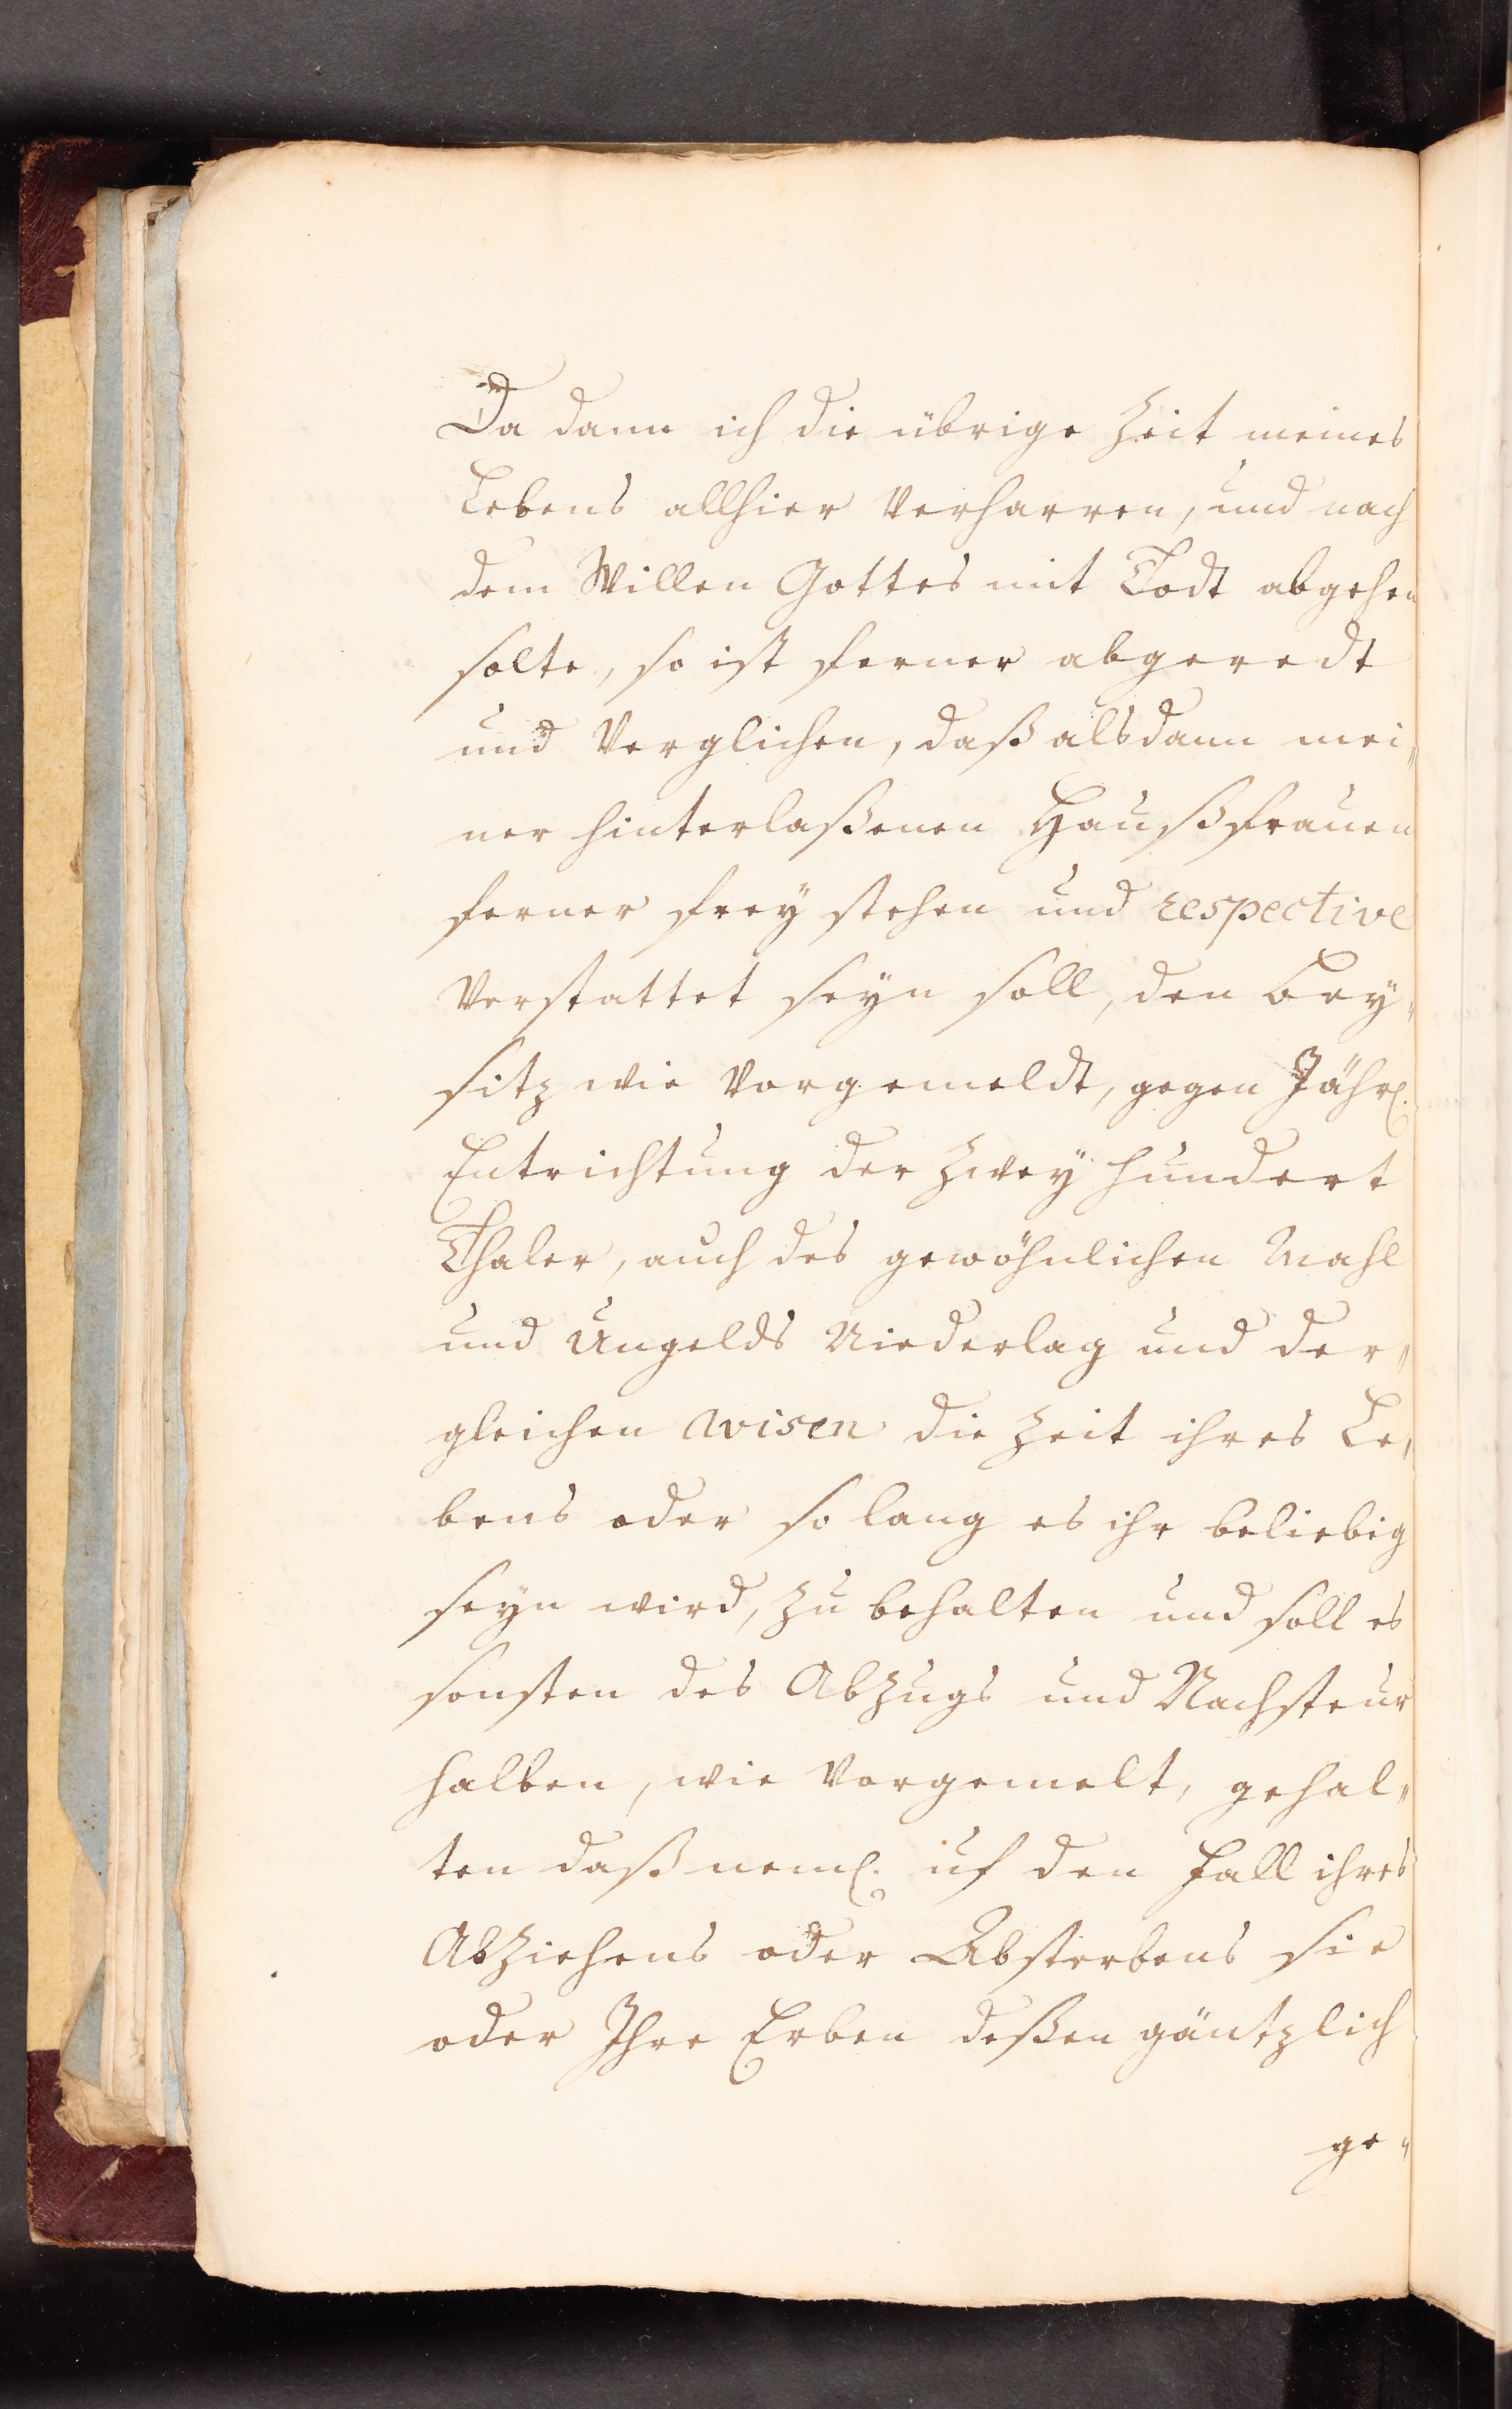 Da dann ich die übrige Zeit meines
Lebens allhier verharren, und nach
dem Willen Gottes mit Todt abgehen
solte, so ist ferner abgeredt
und verglichen, daß alsdann mei„
ner hinterlaßenen Haußfrauen
ferner frey stehen und respective
verstattet seyn soll, den Bey„
sitz wie vorgemeldt, gegen Jährl.
Entrichtung der Zwey hundert
Thaler, auch des gewöhnlichen Mahl
und Ungelds Niederlag und der„
gleichen die Zeit ihres Le„
bens oder so lang es ihr beliebig
seyn wird, zu behalten und soll es
sonsten des Abzugs und Nachsteur
halben, wie vorgemelt, gehal„
ten daß neml. uf den Fall ihres
Abziehens oder Absterbens sie
oder Ihre Erben deßen gäntzlich
ge„